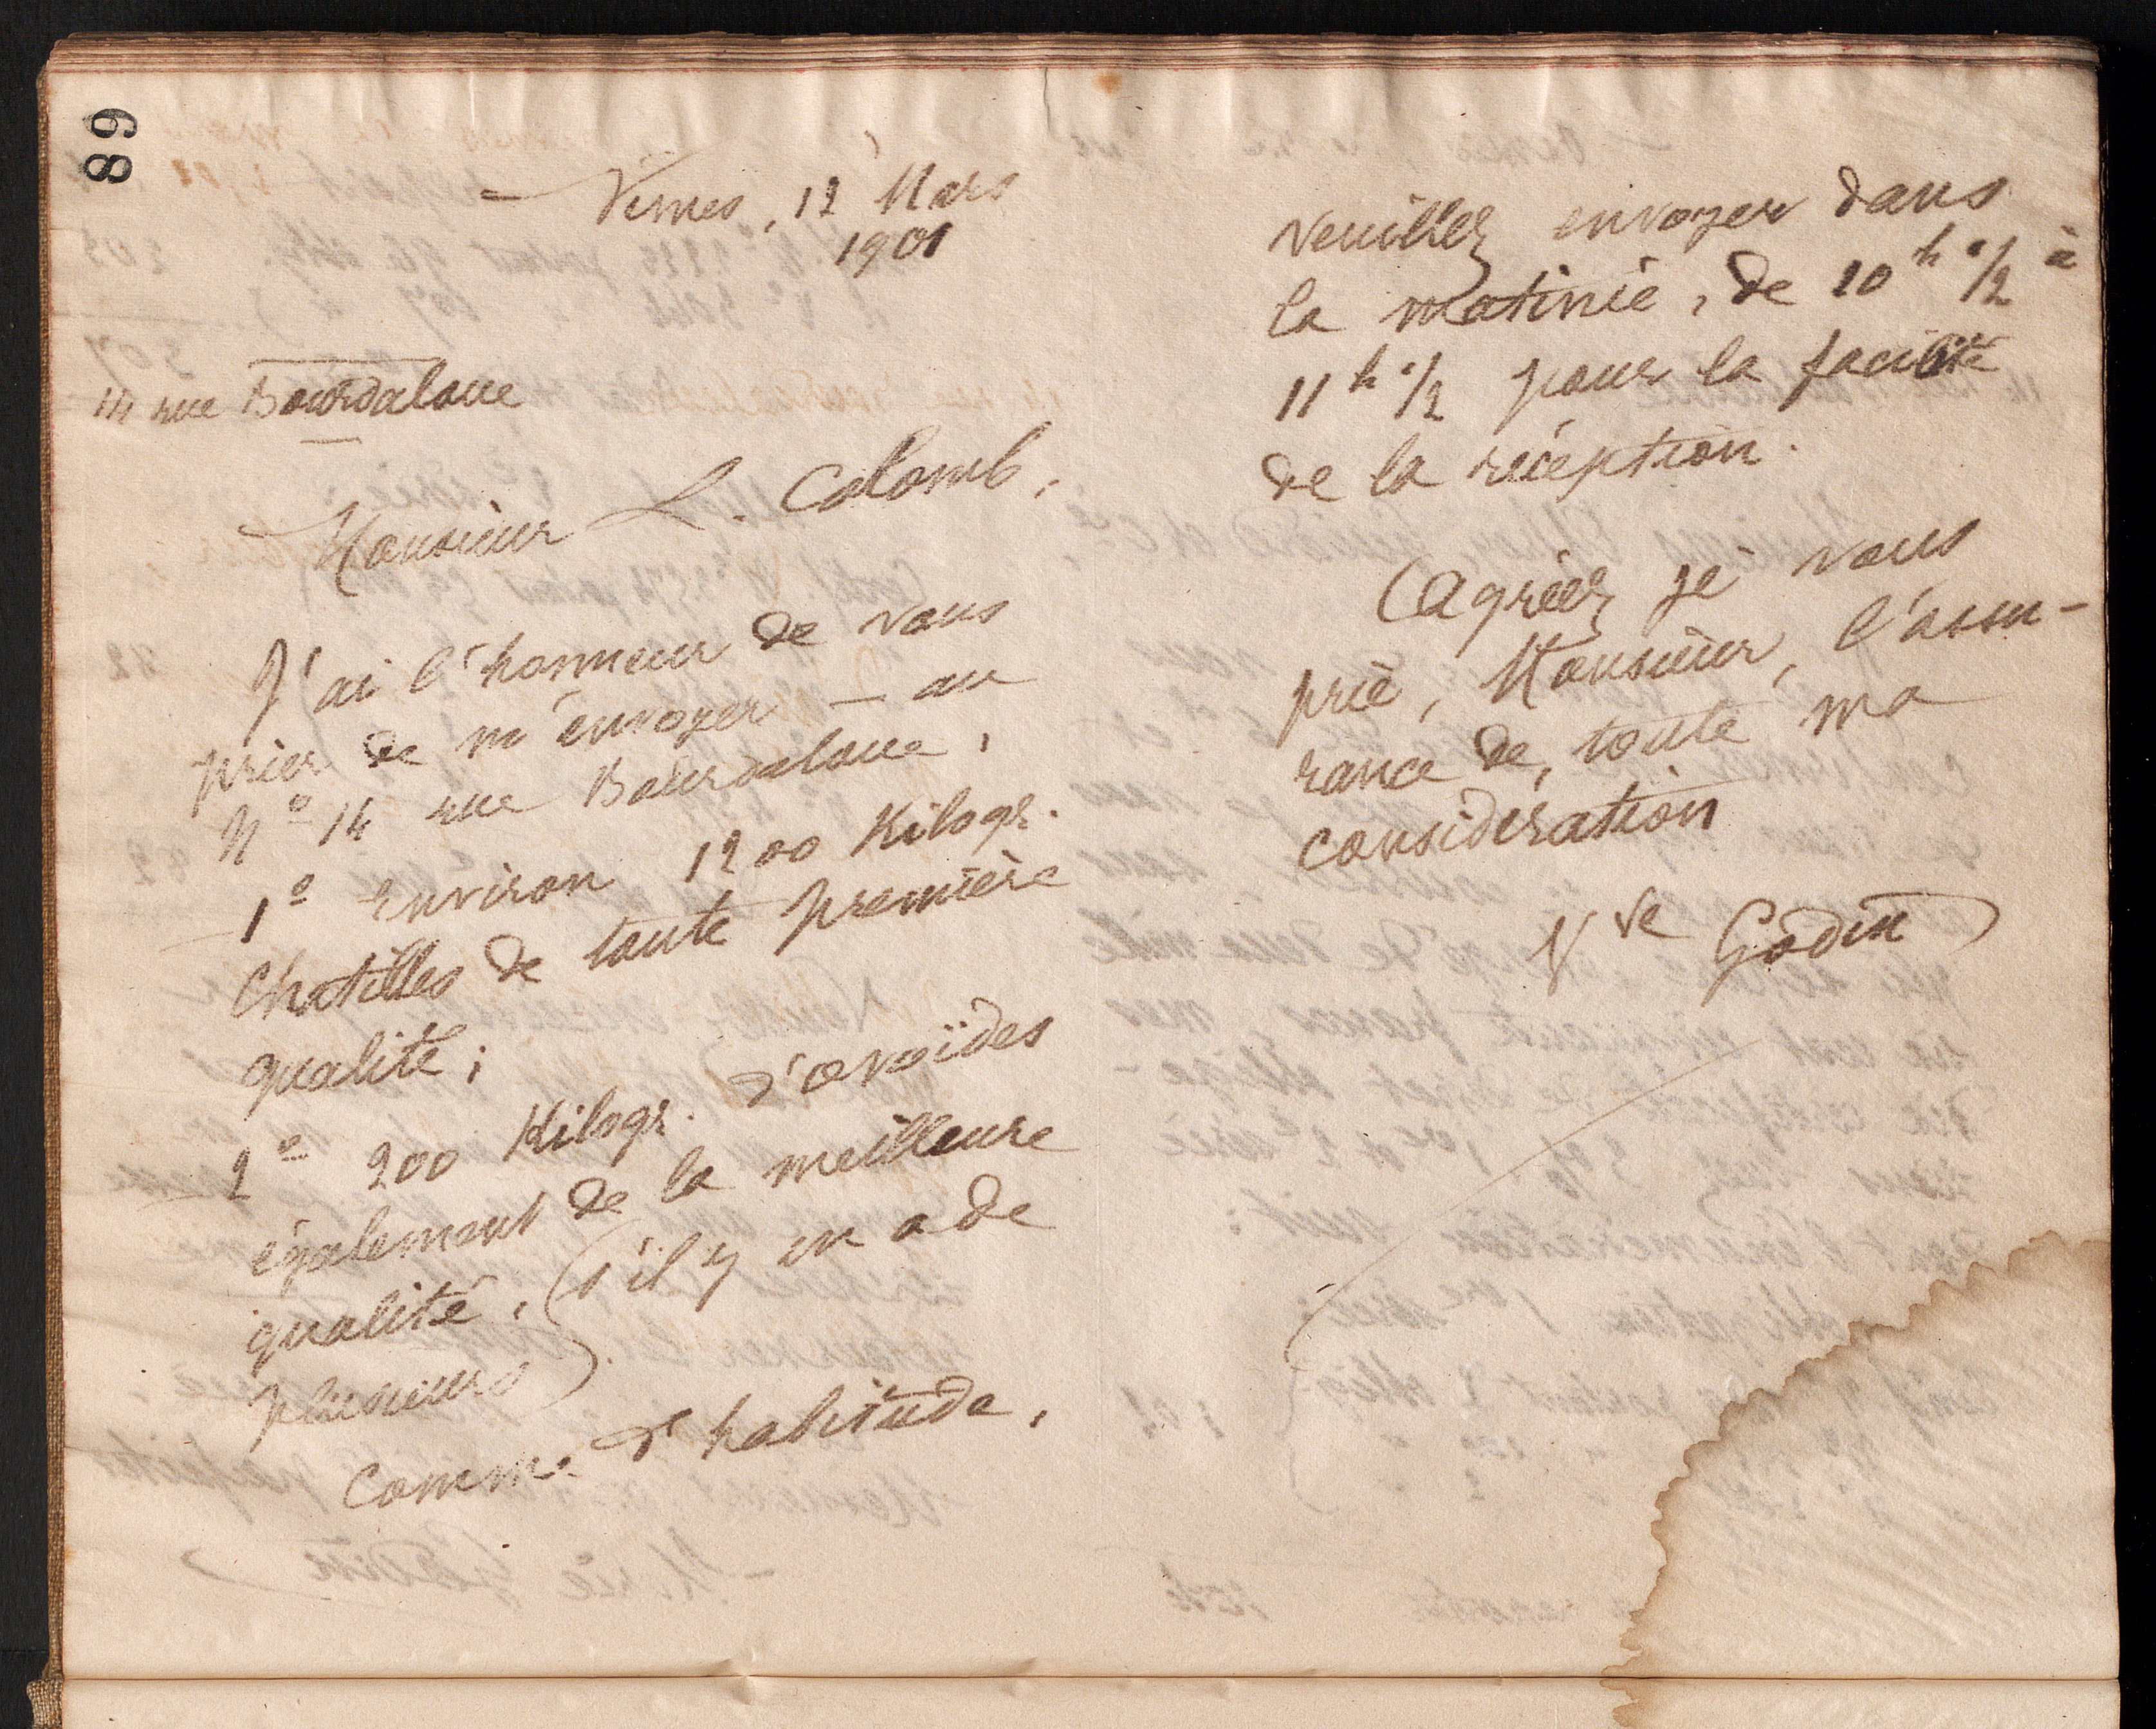 89
Nimes, 12 Mars
1901
14 rue Bourdaloue
Monsieur L. Colomb,
J'ai l'honneur de vous
prier de m'envoyer — au
No 14 rue Bourdaloue,
1o environ 1200 Kilogr.
Chatilles de toute première
qualité;
2o 200 Kilogr. d'ovoïdes
également de la meilleure
qualité, (s'il y en a de
plusieurs).
Comme d'habitude,
veuillez envoyer dans
la matinée, de 10 h 1/2 à
11 h 1/2 pour la facilité
de la réception.
Agréez, je vous
prie, Monsieur, l'assu-
rance de, toute ma
considération
Vve Godin